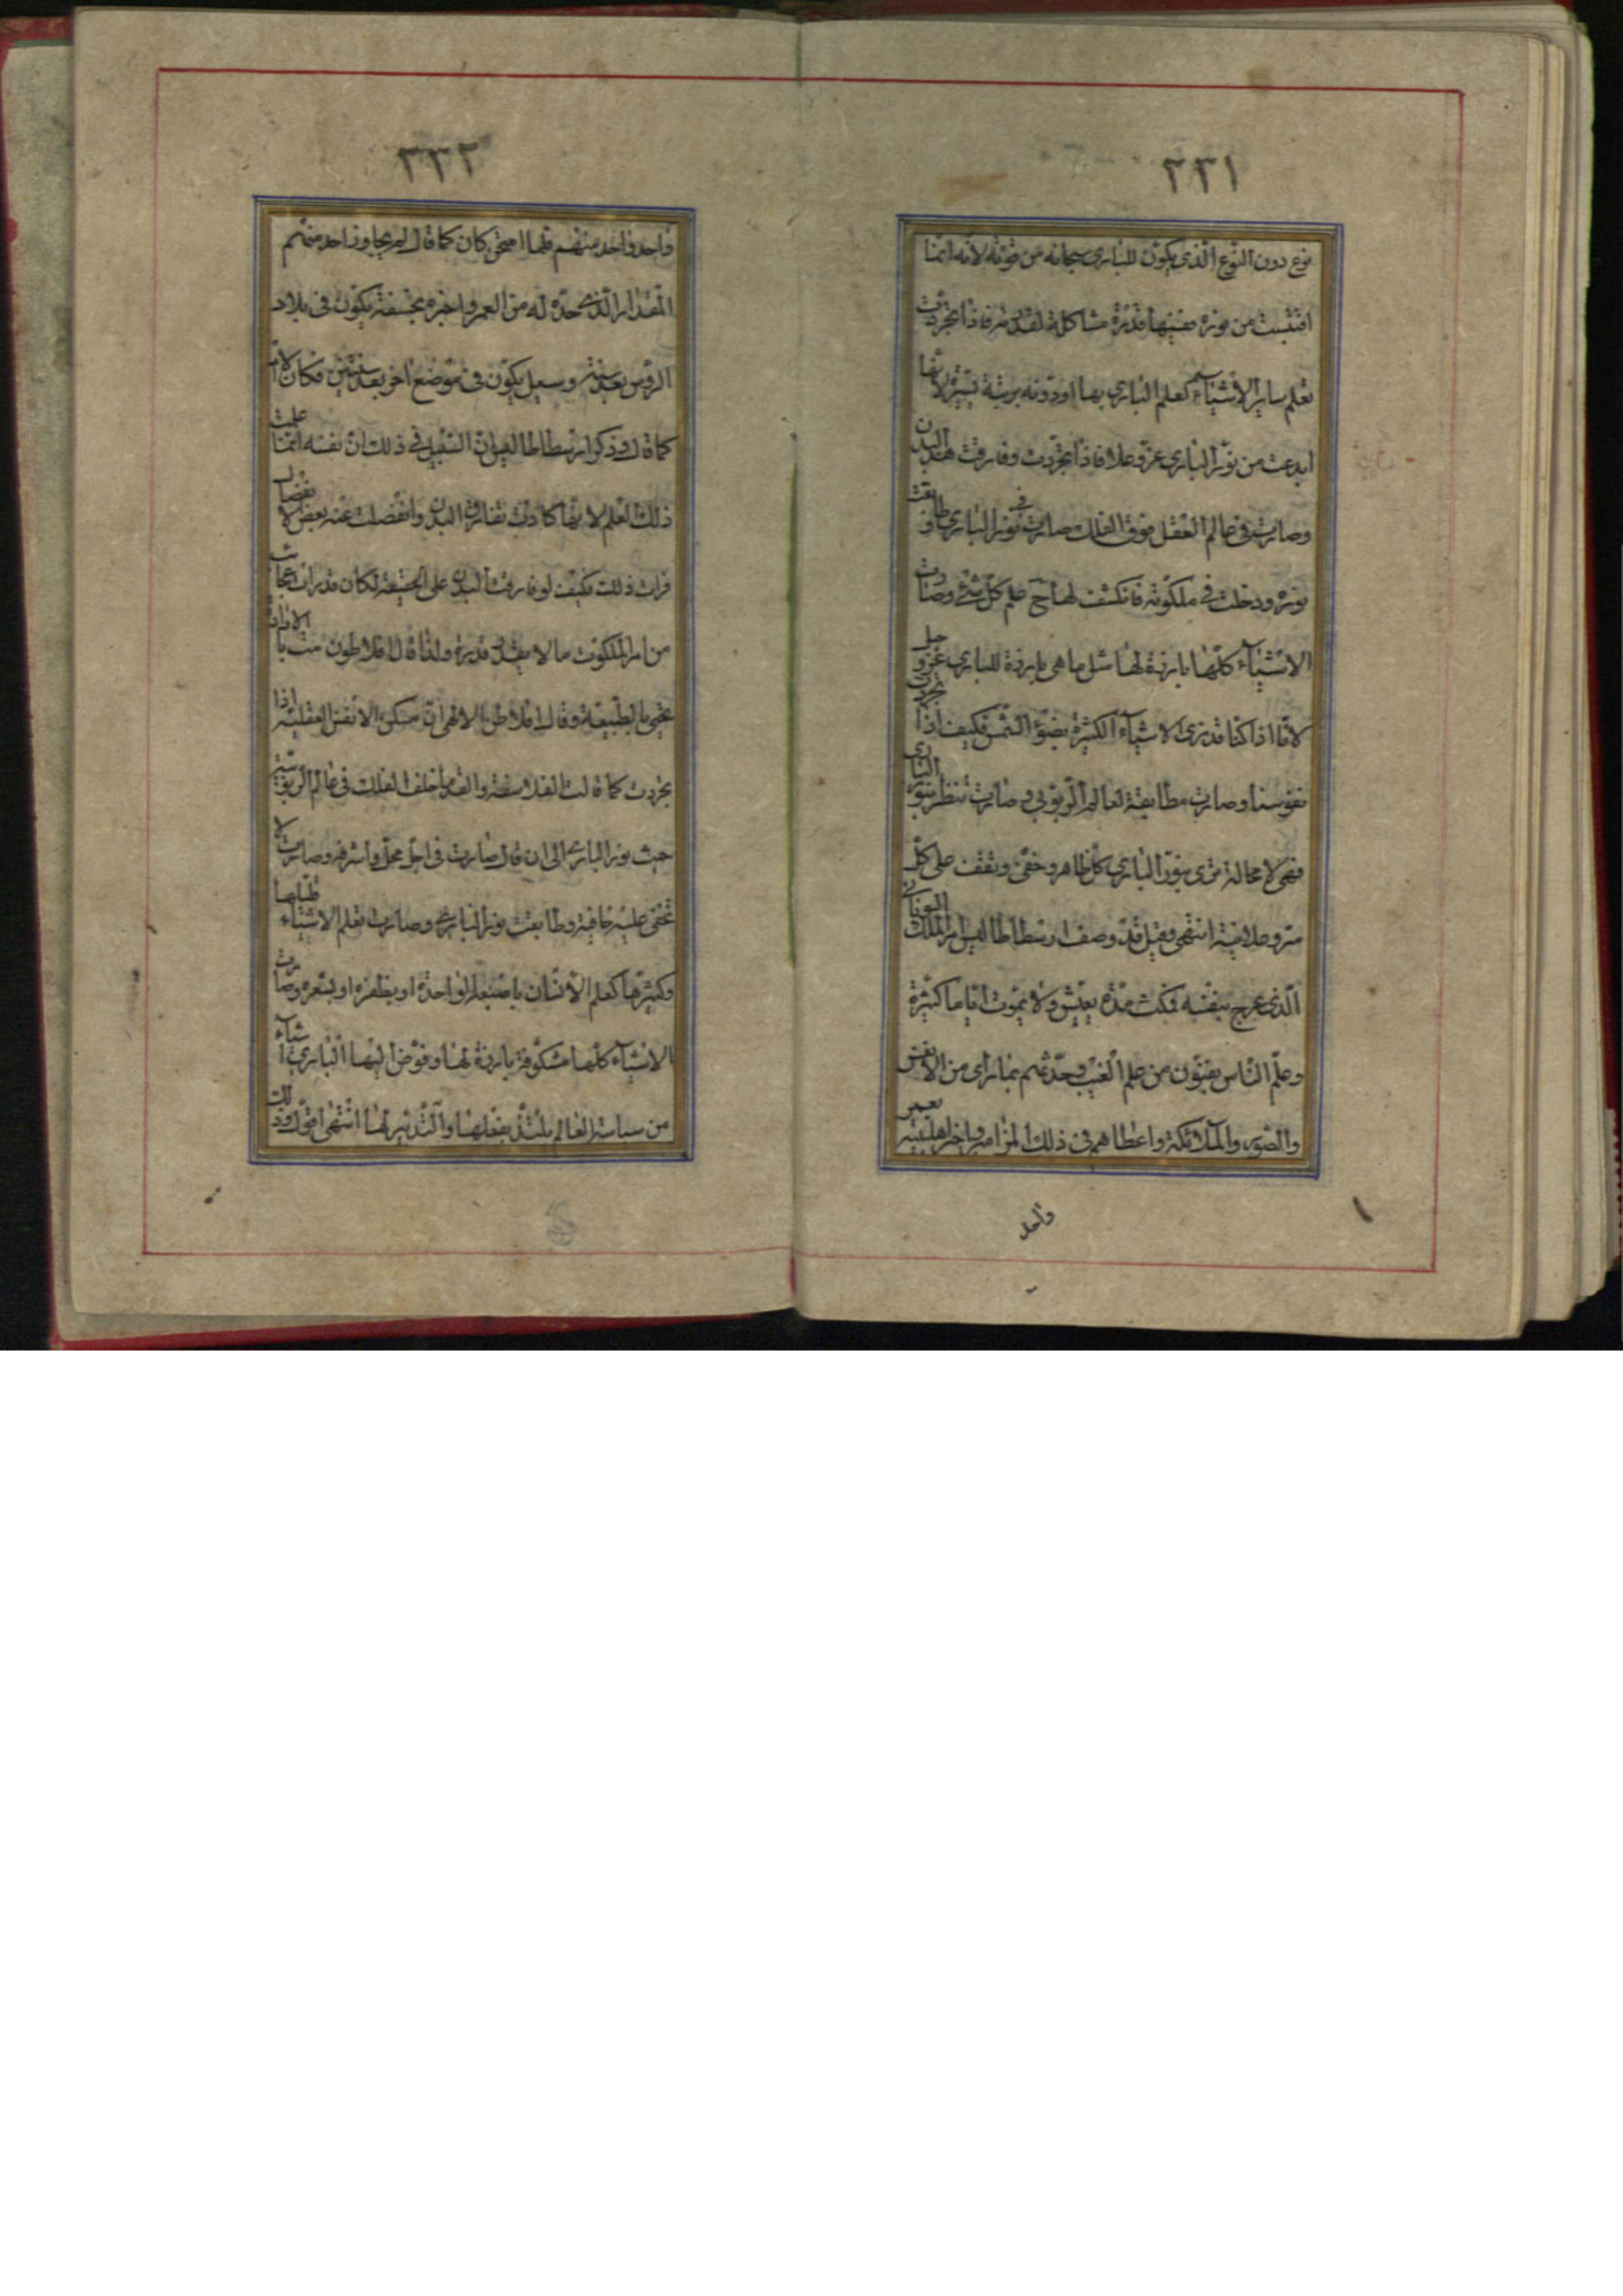 ٢٣١
نوع دون النوع الذى يكون للبارى سبحانه من قوته لانه انما
اقتبست من نوره ففيها قدرة مشاكلة لقدرته فاذا تجردت
تعلم ساير الاشياء كعلم البارى بها او دونه برتبة يسيرة لانها
ابدعت من نور البارى عز و علا فاذا تجردت وفارقت هذا البدن
وصارت فى عالم العقل فوق الفلك صارت فى نور البارى وطابقت
نوره ودخلت فى ملكوته فانكشف لها ح علم كل شئ وصارت
الاشياء كلها بارزة لها مثل ما هى بارزة للبارى عز و جل
لانا اذا كنا قد نرى الاشياء الكثيرة بضوء الشمس فكيف اذا تجردت
نفوسنا وصارت مطابقة لعالم الربوبى وصارت تنظر بنور البارى
فهى لا محالة ترى بنور البارى كل ظاهر وخفى وتقف على كل
سر وعلانية انتهى وقيل قد وصف ارسطاطاليس امر الملك اليونانى
الذى عرج بنفسه فمكث مدة يعيش ولا يموت اياما كثيرة
وعلم الناس بفنون من علم الغيب وحدثهم بما راى من الانفس
والصور والملائكة واعطاهم فى ذلك البراهين واخبر اهل بيته بعمر
واحد
٢٣٢
واحد واحد منهم فلما امتحن كان كما قال لم يجاوز احد منهم
المقدار الذى حده له من العمر واخبره بخسفة يكون فى بلاد
الروس بعد سنة وسيل يكون فى موضع آخر بعد سنتين فكان الامر
كما قال وذكر ارسطاطاليس ان السبيل فى ذلك ان نفسه انما علمت
ذلك العلم لانها كادت تفارق البدن وانفصلت عنه بعض الانفصال
فرات ذلك فكيف لو فارقت البدن على الحقيقة لكان قد رات عجايب
من امر الملكوت ما لا يقدر قدره ولذا قال افلاطون مت بالارادة
تحيى بالطبيعة وقال افلاطن الالهى ان مسكن الانفس العقلية اذا
تجردت كما قالت الفلاسفة والقدما خلف الفلك فى عالم الربوبية
حيث نور البارى الى ان قال صارت فى اجل محل واشرفه وصارت لا
تخفى عليه خافية وطابقت نور البارى وصارت تعلم الاشياء قليلها
وكثيرها كعلم الانسان باصبعه الواحدة او بظفره او بشعره وصارت
الاشياء كلها مكشوفة بارزة لها وفوض اليها البارى اشياء
من سياسة العالم يلتذ بفعلها والتدبير لها انتهى اقول وذلك